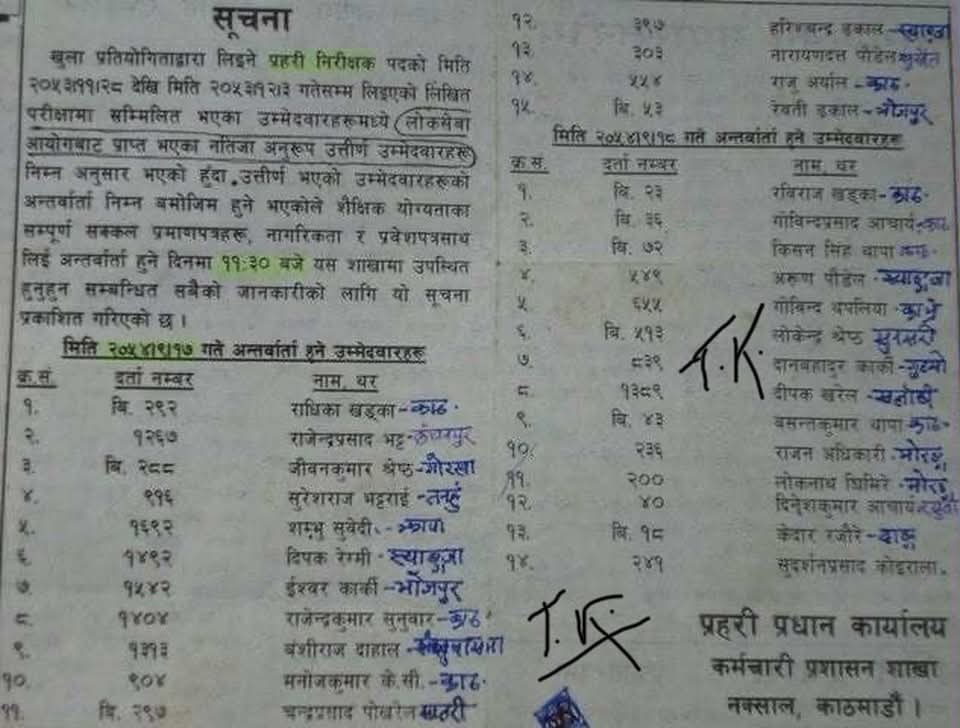 सूचना
खुला प्रतियोगिताद्वारा लिइने प्रहरी निरीक्षक पदको मिति
२०५३।११।२८ देखि मिति २०५३।१२।३ गतेसम्म लिइएको लिखित
परीक्षामा सम्मिलित भएका उम्मेदवारहरूमध्ये लोकसेवा
आयोगबाट प्राप्त भएका नतिजा अनुरूप उत्तीर्ण उम्मेदवारहरू
निम्न अनुसार भएको हुंदा उत्तीर्ण भएको उम्मेदवारहरूको
अन्तर्वार्ता निम्न बमोजिम हुने भएकोले शैक्षिक योग्यताका
सम्पूर्ण सक्कल प्रमाणपत्रहरू, नागरिकता र प्रवेशपत्रसाथ
लिई अन्तर्वार्ता हुने दिनमा ११:३० बजे यस शाखामा उपस्थित
हुनुहुन सम्बन्धित सबैको जानकारीको लागि यो सूचना
प्रकाशित गरिएको छ ।
मिति २०५४।९।१७ गते अन्तर्वार्ता हुने उम्मेदवारहरू
क्र.सं. दर्ता नम्बर नाम, थर
१. बि. २९२ राधिका खड्का-काठ.
२. १२६७ राजेन्द्रप्रसाद भट्ट-कंचनपुर
३. बि. २८८ जीवनकुमार श्रेष्ठ-गोरखा
४. ९१६ सुरेशराज भट्टराई-तनहुं
५. १६९२ शम्भु सुवेदी-झापा
६. १४९२ दिपक रेग्मी-स्याङ्जा
७. १५४२ ईश्वर कार्की-भोजपुर
८. १४०४ राजेन्द्रकुमार सुनुवार-काठ
९. १३१३ बंशीराज दाहाल
१०. ९०४ मनोजकुमार के.सी.-काठ.
११. बि. २९७ चन्द्रप्रसाद पोखरेल
१२. ३९७ हरिश्चन्द्र ढकाल-स्याङ्जा
१३. ३०३ नारायणदत्त पौडेल सुर्खेत
१४. ५५४ राजु अर्याल-काठ.
१५. बि. ५३ रेवती ढकाल-भोजपुर
मिति २०५४।९।१८ गते अन्तर्वार्ता हुने उम्मेदवारहरू
क्र.सं. दर्ता नम्बर नाम, थर
१. बि. २३ रविराज खड्का-काठ.
२. बि. ३६ गोविन्दप्रसाद आचार्य-काठ
३. बि. ७२ किसन सिंह थापा काठ.
४. ५४९ अरूण पौडेल-स्याङ्जा
५. ६५५ गोविन्द थपलिया-काभ्रे
६. बि. ५१३ लोकेन्द्र श्रेष्ठ सुनसरी
७. ८३९ दानबहादुर कार्की-गुल्मी
८. १३८९ दीपक खरेल-सर्लाही
९. बि. ४३ बसन्तकुमार थापा-काठ.
१०. २३६ राजन अधिकारी-मोरङ्ग
११. २०० लोकनाथ घिमिरे-मोरङ्ग
१२. ४० दिनेशकुमार आचार्य
१३. बि. १८ केदार रजौरे-दाङ्ग
१४. २४१ सुदर्शनप्रसाद कोइराला.
T.K.
T.K.
प्रहरी प्रधान कार्यालय
कर्मचारी प्रशासन शाखा
नक्साल, काठमाडौं ।